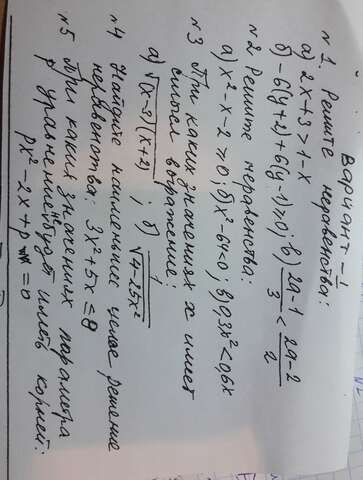 Вариант - 1
№1. Решите неравенства:
а) 2x+3>1-x
б) -6(y+2)+6(y-1)≥0; в) (2a-1)/3 < (2a-2)/2
№2 Решите неравенства:
а) x²-x-2≥0; б) x²-64<0; в) 0,3x²<0,6x
№3 При каких значениях x имеет
смысл выражение:
а) √(x-3)(x+2) ; б) 1/√(4-25x²)
№4 Найдите наименьшее целое решение
неравенства: 3x²+5x≤8
№5 При каких значениях параметра
p уравнение не будет иметь корней:
px²-2x+p=0